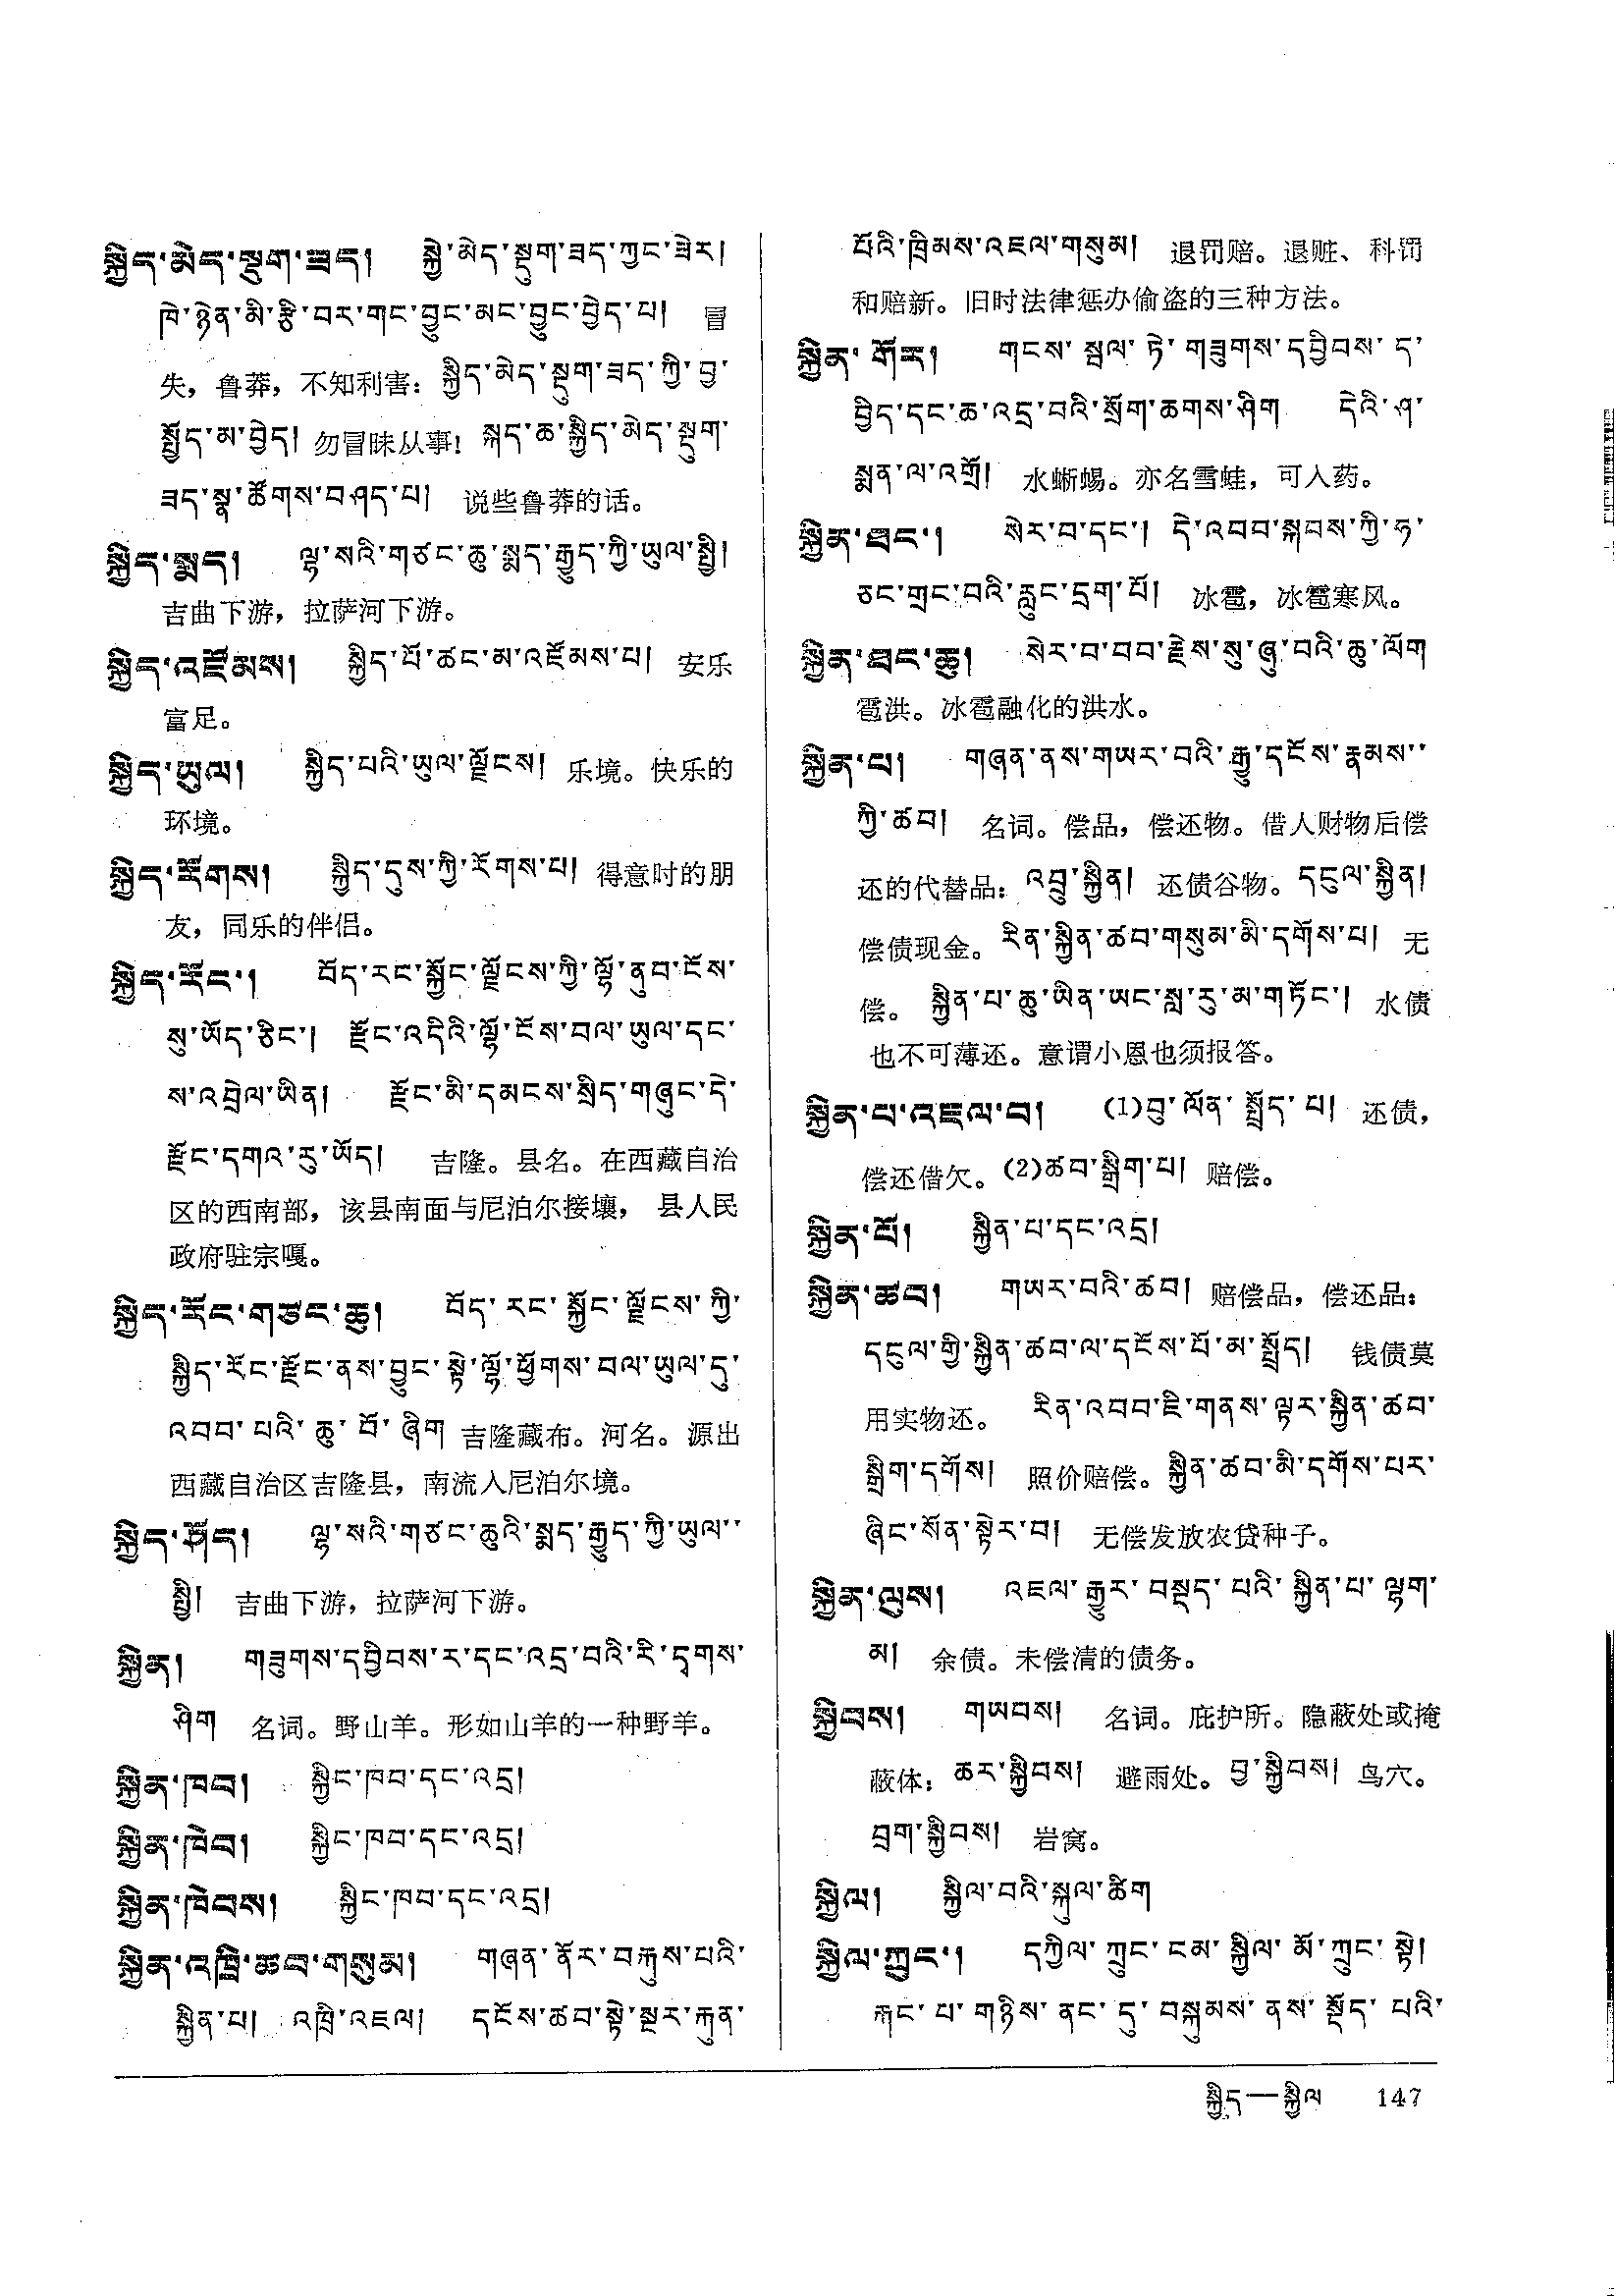 སྐྱིད་མེད་སྡུག་ཟད། སྐྱེ་མེད་སྡུག་ཟད་ཀྱང་ཟེར།
ཁེ་ཉེན་མི་རྩི་བར་གང་བྱུང་མང་བྱུང་བྱེད་པ། 冒
失，鲁莽，不知利害：སྐྱིད་མེད་སྡུག་ཟད་ཀྱི་བྱ་
སྤྱོད་མ་བྱེད། 勿冒昧从事！སྐད་ཆ་སྐྱིད་མེད་སྡུག་
ཟད་སྣ་ཚོགས་བཤད་པ། 说些鲁莽的话。
སྐྱིད་སྨད། ལྷ་སའི་གཙང་ཆུ་སྨད་རྒྱུད་ཀྱི་ཡུལ་སྤྱི།
吉曲下游，拉萨河下游。
སྐྱིད་འཛོམས། སྐྱིད་པོ་ཚང་མ་འཛོམས་པ། 安乐
富足。
སྐྱིད་ཡུལ། སྐྱིད་པའི་ཡུལ་ལྗོངས། 乐境。快乐的
环境。
སྐྱིད་རོགས། སྐྱིད་དུས་ཀྱི་རོགས་པ། 得意时的朋
友，同乐的伴侣。
སྐྱིད་རོང་། བོད་རང་སྐྱོང་ལྗོངས་ཀྱི་ལྷོ་ནུབ་ངོས་
སུ་ཡོད་ཅིང་། རྫོང་འདིའི་ལྷོ་ངོས་བལ་ཡུལ་དང་
ས་འབྲེལ་ཡིན། རྫོང་མི་དམངས་སྲིད་གཞུང་དེ་
རྫོང་དགའ་རུ་ཡོད། 吉隆。县名。在西藏自治
区的西南部，该县南面与尼泊尔接壤，县人民
政府驻宗嘎。
སྐྱིད་རོང་གཙང་ཆུ། བོད་རང་སྐྱོང་ལྗོངས་ཀྱི་
སྐྱིད་རོང་རྫོང་ནས་བྱུང་སྟེ་ལྷོ་ཕྱོགས་བལ་ཡུལ་དུ་
འབབ་པའི་ཆུ་བོ་ཞིག 吉隆藏布。河名。源出
西藏自治区吉隆县，南流入尼泊尔境。
སྐྱིད་ཤོད། ལྷ་སའི་གཙང་ཆུའི་སྨད་རྒྱུད་ཀྱི་ཡུལ་་
སྤྱི། 吉曲下游，拉萨河下游。
སྐྱིན། གཟུགས་དབྱིབས་ར་དང་འདྲ་བའི་རི་དྭགས་
ཤིག 名词。野山羊。形如山羊的一种野羊。
སྐྱིན་ཁབ། སྐྱིང་ཁབ་དང་འདྲ།
སྐྱིན་ཁེབ། སྐྱིང་ཁབ་དང་འདྲ།
སྐྱིན་ཁེབས། སྐྱིང་ཁབ་དང་འདྲ།
སྐྱིན་འཁྲི་ཚབ་གསུམ། གཞན་ནོར་བརྐུས་པའི་
སྐྱིན་པ། འཁྲི་འཇལ། དངོས་ཚབ་སྟེ་སྔར་རྐུན་
པོའི་ཁྲིམས་འཇལ་གསུམ། 退罚赔。退赃、科罚
和赔新。旧时法律惩办偷盗的三种方法。
སྐྱིན་གོར། གངས་སྦལ་ཏེ་གཟུགས་དབྱིབས་ད་
བྱིད་དང་ཆ་འདྲ་བའི་སྲོག་ཆགས་ཤིག དེའི་ཤ་
སྨན་ལ་འགྲོ། 水蜥蜴。亦名雪蛙，可入药。
སྐྱིན་ཐང་། སེར་བ་དང་། དེ་འབབ་སྐབས་ཀྱི་ཧ་
ཅང་གྲང་བའི་རླུང་དྲག་པོ། 冰雹，冰雹寒风。
སྐྱིན་ཐང་ཆུ། སེར་བ་བབ་རྗེས་སུ་ཞུ་བའི་ཆུ་ལོག
雹洪。冰雹融化的洪水。
སྐྱིན་པ། གཞན་ནས་གཡར་བའི་རྒྱུ་དངོས་རྣམས་་
ཀྱི་ཚབ། 名词。偿品，偿还物。借人财物后偿
还的代替品：འབྲུ་སྐྱིན། 还债谷物。དངུལ་སྐྱིན།
偿债现金。རིན་སྐྱིན་ཚབ་གསུམ་མི་དགོས་པ། 无
偿。 སྐྱིན་པ་ཆུ་ཡིན་ཡང་སླ་རུ་མ་གཏོང་། 水债
也不可薄还。意谓小恩也须报答。
སྐྱིན་པ་འཇལ་བ། (1)བུ་ལོན་སྤྲོད་པ། 还债，
偿还借欠。(2)ཚབ་སྒྲིག་པ། 赔偿。
སྐྱིན་པོ། སྐྱིན་པ་དང་འདྲ།
སྐྱིན་ཚབ། གཡར་བའི་ཚབ། 赔偿品，偿还品：
དངུལ་གྱི་སྐྱིན་ཚབ་ལ་དངོས་པོ་མ་སྤྲོད། 钱债莫
用实物还。 རིན་འབབ་ཇི་གནས་ལྟར་སྐྱིན་ཚབ་
སྒྲིག་དགོས། 照价赔偿。སྐྱིན་ཚབ་མི་དགོས་པར་
ཞིང་སོན་སྟེར་བ། 无偿发放农贷种子。
སྐྱིན་ལུས། འཇལ་རྒྱུར་བསྡད་པའི་སྐྱིན་པ་ལྷག་
མ། 余债。未偿清的债务。
སྐྱིབས། གཡབས། 名词。庇护所。隐蔽处或掩
蔽体：ཆར་སྐྱིབས། 避雨处。བྱ་སྐྱིབས། 鸟穴。
བྲག་སྐྱིབས། 岩窝。
སྐྱིལ། སྐྱིལ་བའི་སྐུལ་ཚིག
སྐྱིལ་ཀྲུང་། དཀྱིལ་ཀྲུང་ངམ་སྐྱིལ་མོ་ཀྲུང་སྟེ།
རྐང་པ་གཉིས་ནང་དུ་བསྐུམས་ནས་སྡོད་པའི་
སྐྱིད—སྐྱིལ 147